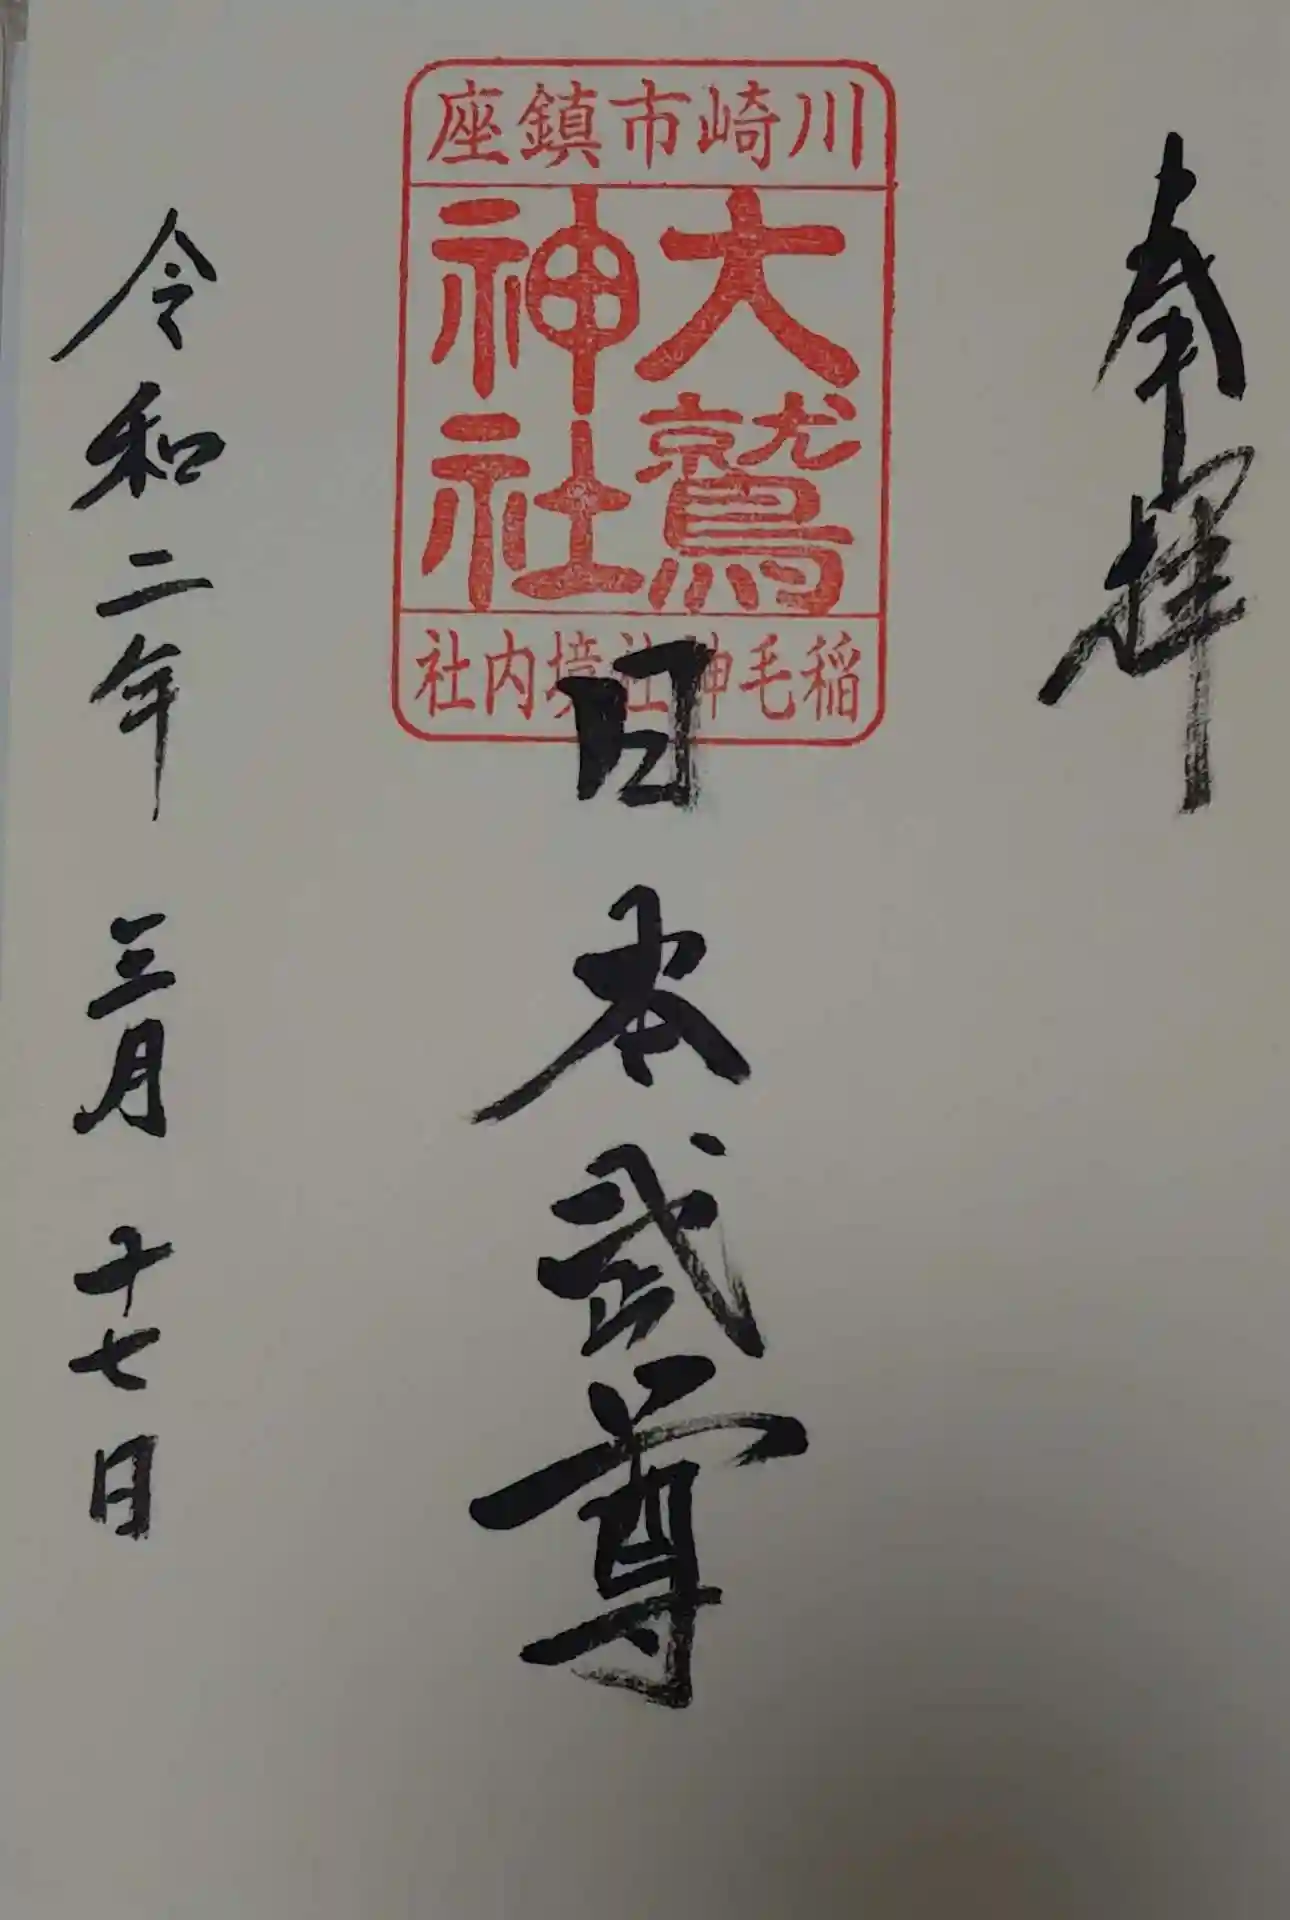 奉拝
川崎市鎮座
大鷲
神社
稲毛神社境内社
日本武尊
令和二年 三月 十七日